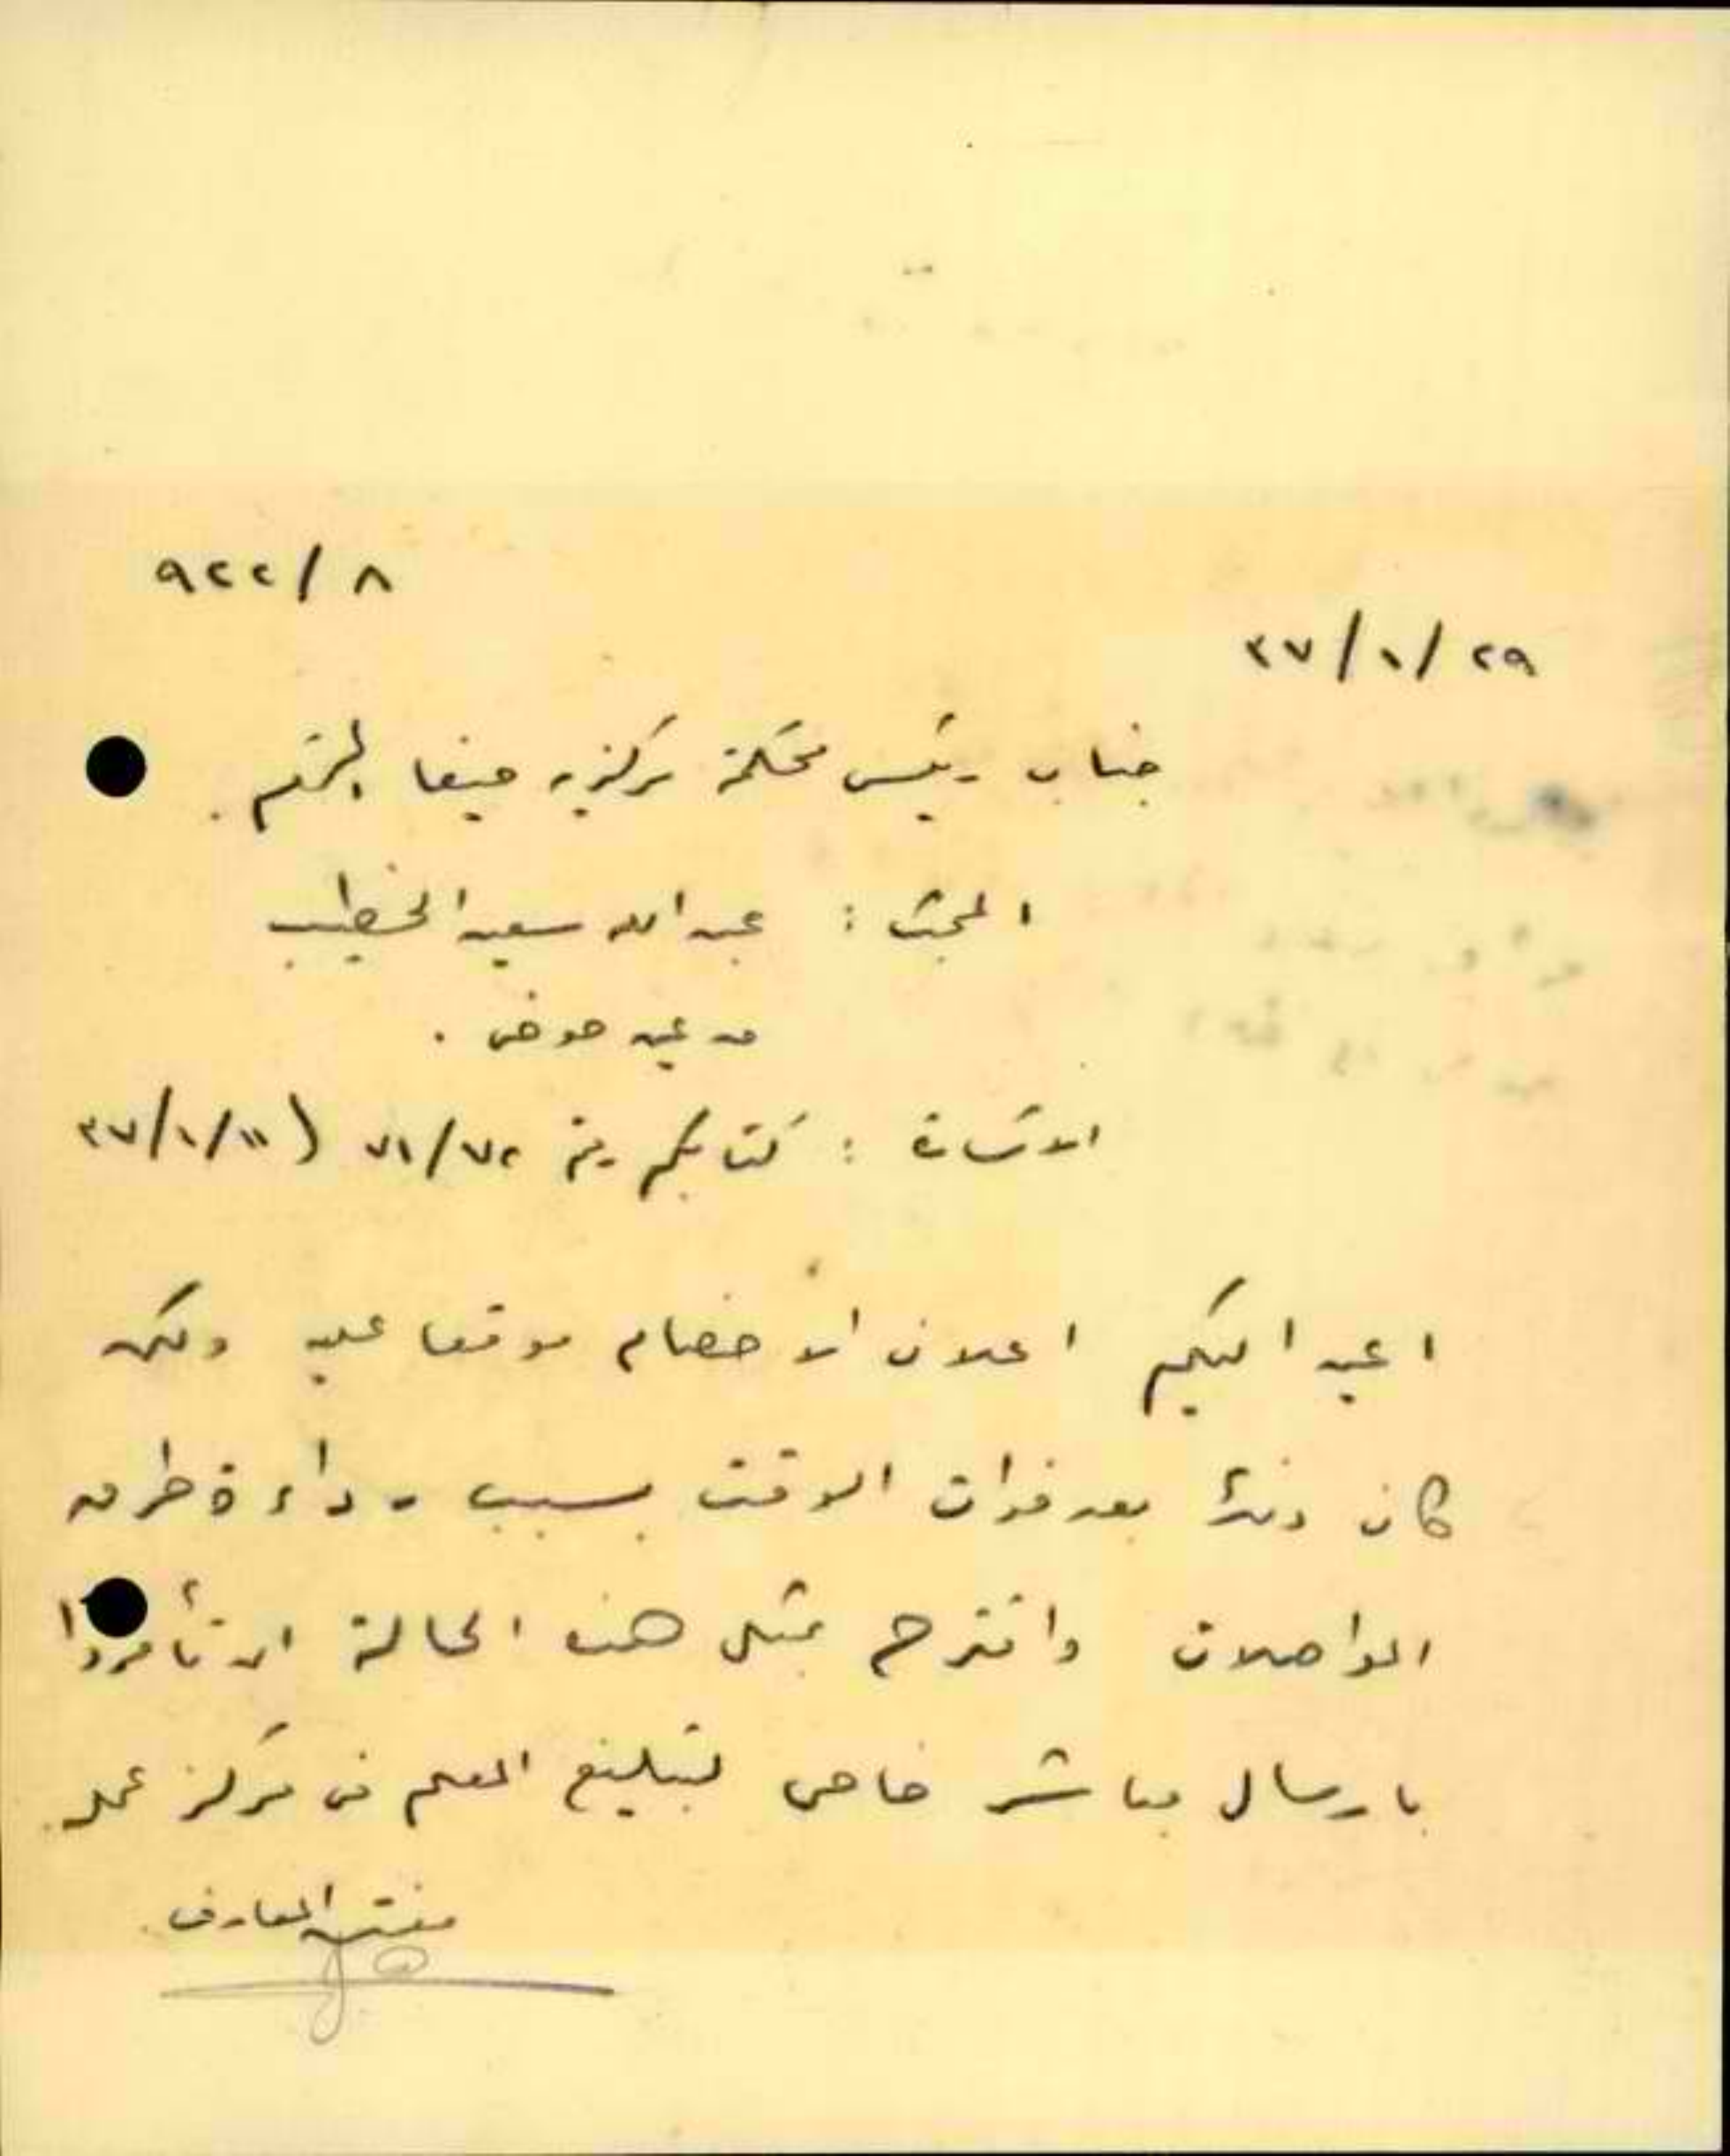 ٨/٩٢٢
٢٩/١/٣٧
جناب رئيس محكمة مركزية حيفا المحترم .
المبحث : عبدالله سعيد الخطيب
من عين حوض .
الاشارة : كتابكم رقم ٧١/٧٢ (١١/١/٣٧
اعيد اليكم اعلان الأخصام موقعا عليه ولكن
كان ذلك بعد فوات الوقت بسبب رداءة طرق
المواصلات واقترح بمثل هذه الحالة ان تأمروا
بارسال مباشر خاص لتبليغ المعلم في مركز عمله .
مفتش المعارف